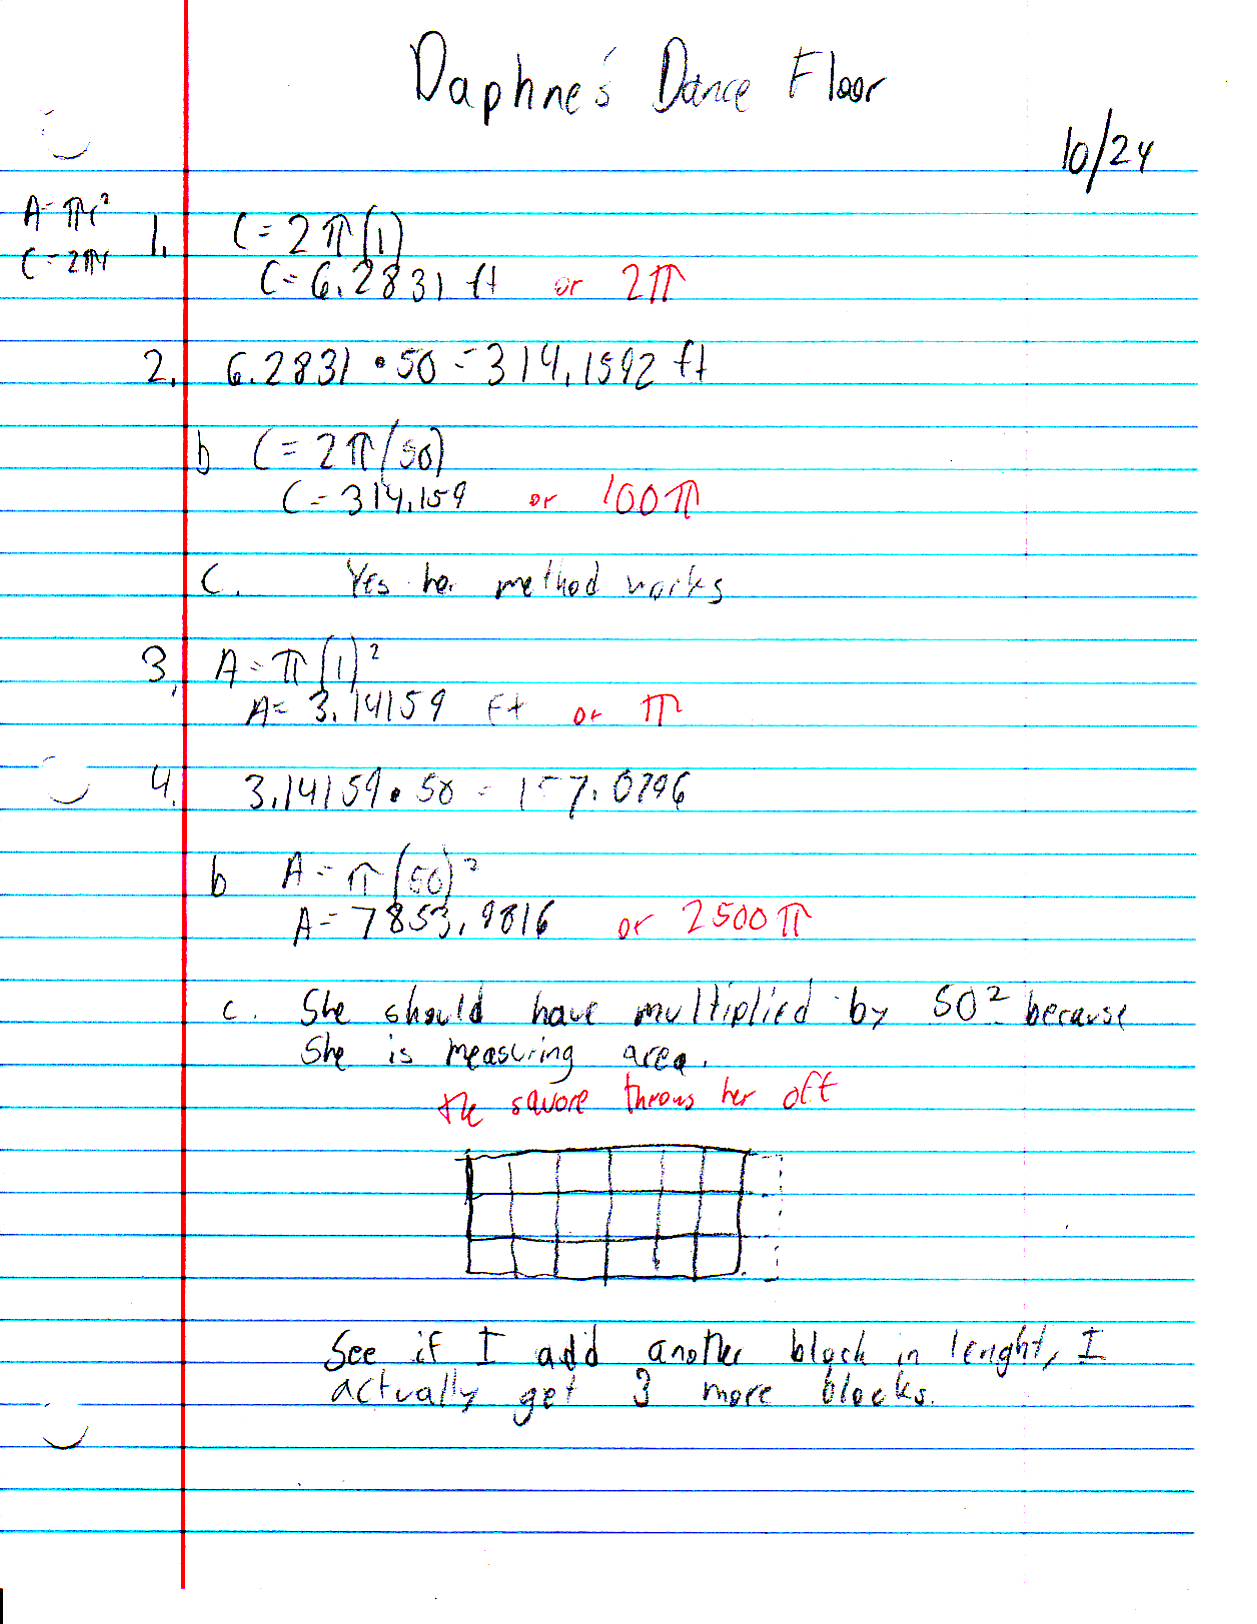 Daphne's Dance Floor
10/24
A=πr²
C=2πr
1. C=2π(1)
C=6.2831 ft or 2π
2. 6.2831•50=314.1592 ft
b C=2π(50)
C=314.159 or 100π
c. Yes her method works
3. A=π(1)²
A=3.14159 Ft or π
4. 3.14159•50=157.0796
b A=π(50)²
A=7853.9816 or 2500π
c. She should have multiplied by 50² because
She is measuring area.
the square throws her off
See if I add another block in lenght, I
actually get 3 more blocks.